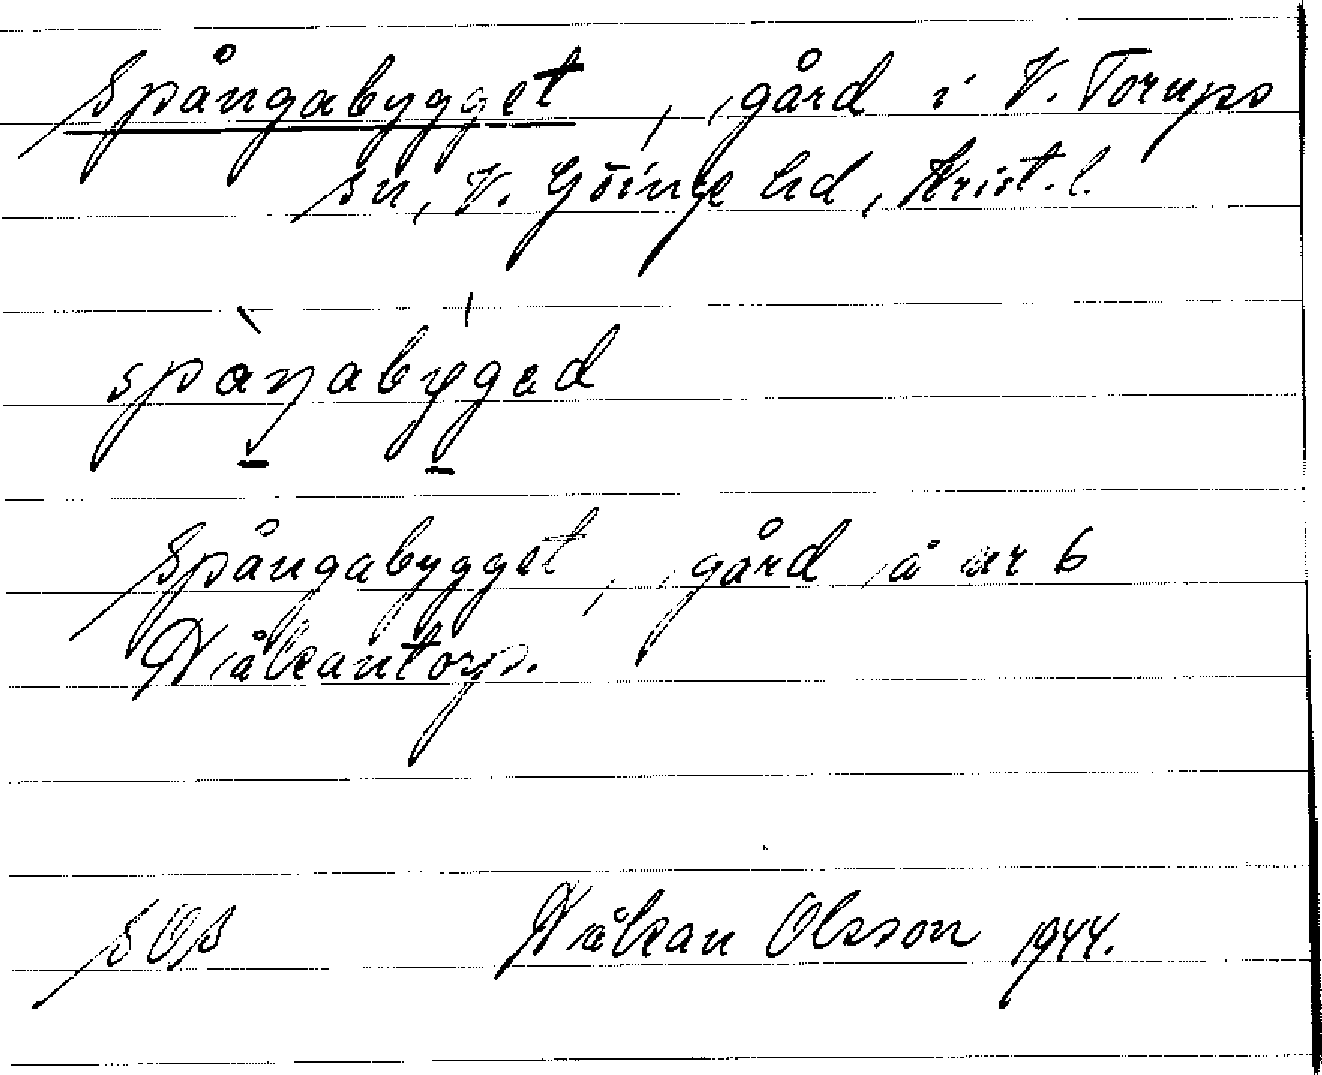 Spångabygget, gård i V. Torups
sn, V. Göinge hd, Krist. l.
spàŋabýgəd
Spångabygget, gård å nr 6
Håkantorp.
SOS Håkan Olsson 1944.